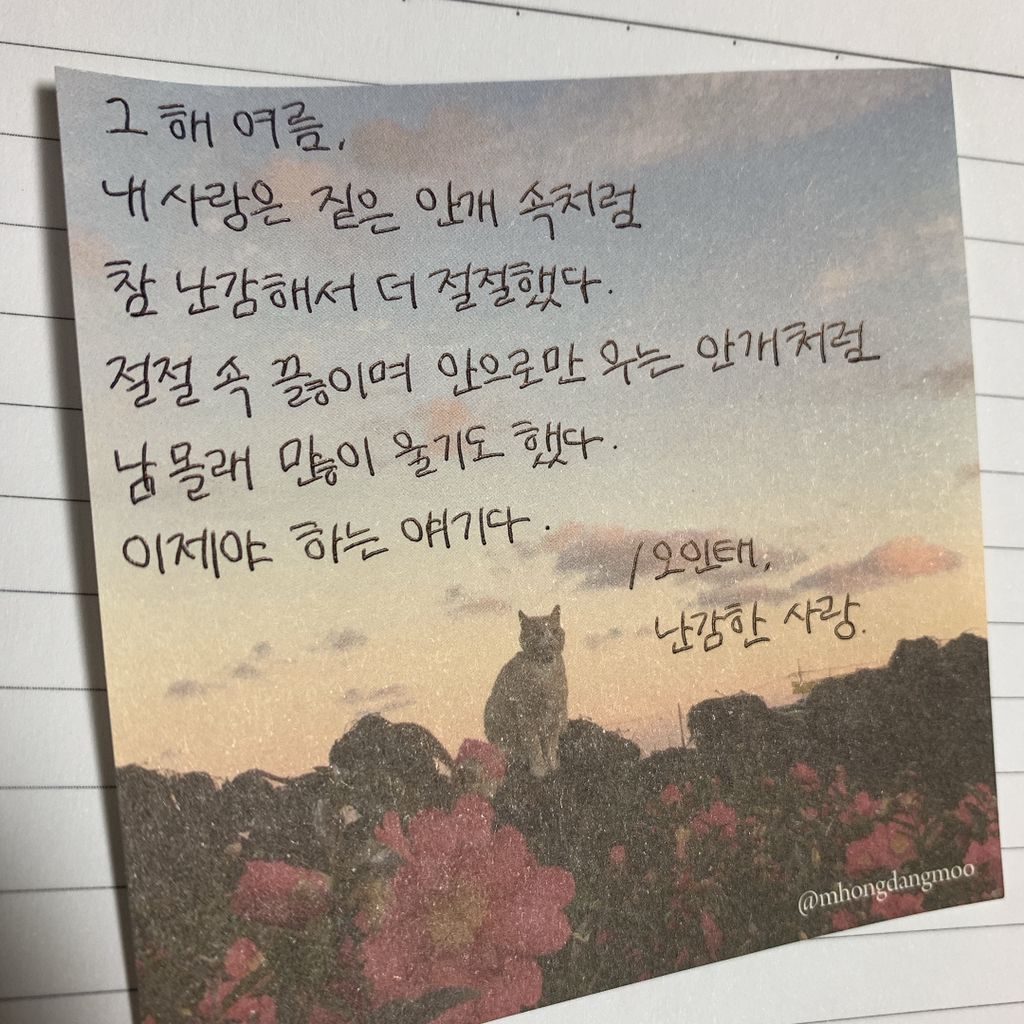 그 해 여름,
내 사랑은 짙은 안개 속처럼
참 난감해서 더 절절했다.
절절 속 끓이며 안으로만 우는 안개처럼
남 몰래 많이 울기도 했다.
이제야 하는 얘기다.
/오인태,
난감한 사랑.
@mhongdangmoo